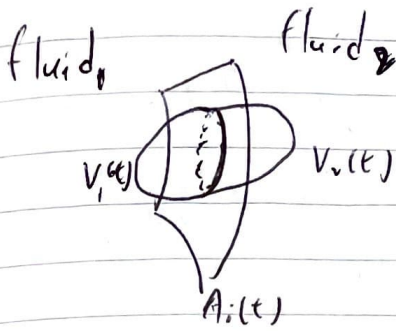 fluid₁ fluid₂
V₁(t) V₂(t)
Aᵢ(t)